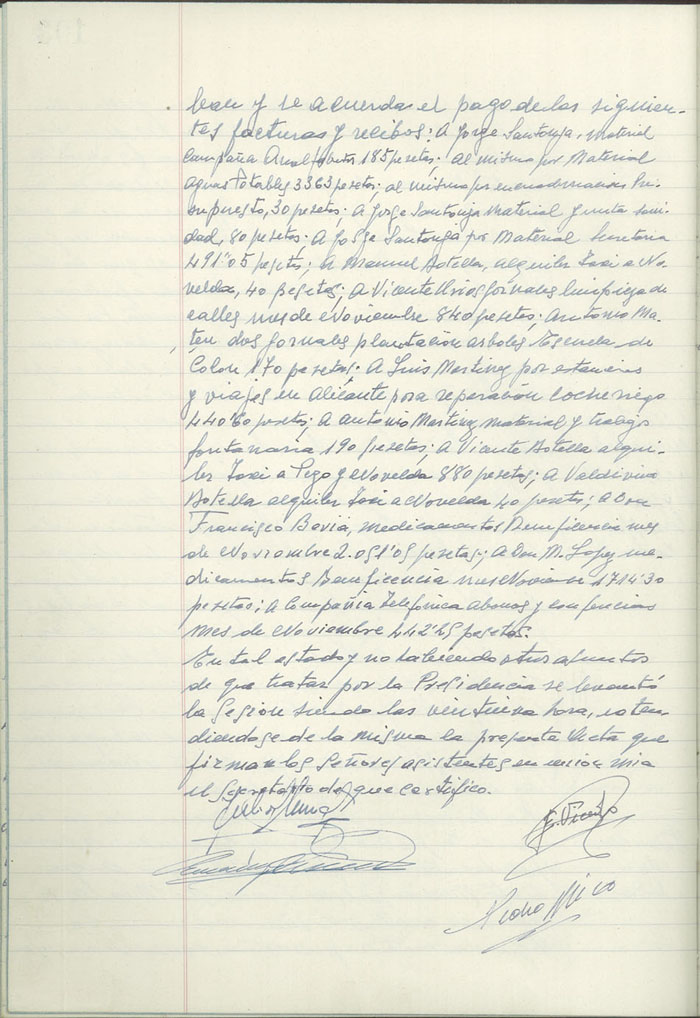 ban y se acuerdas el pago de las siguien-
tes facturas y recibos: A Jorge Santonja, material
campaña Analfabetos 185 pesetas; al mismo por Material
aguas Potables 3363 pesetas; al mismo por encuadernacion Pre-
supuesto, 30 pesetas; A Jorge Santonja Material Junta sani-
dad, 80 pesetas; A Jorge Santonja por Material Secretaria
491'05 pesetas; A Manuel Botella, alquiler Taxi a No-
velda, 40 pesetas; A Vicente Urios jornales limpieza de
calles mes de Noviembre 840 pesetas; Antonio Ma-
, dos jornales plantación arboles Escuela de
Colon 170 pesetas; A Luis Martinez por estancias
y viajes en Alicante para reparación coche riego
440'60 pesetas; A Antonio Martinez material y trabajos
fontaneria 190 pesetas; A Vicente Botella alqui-
ler Taxi a y a Novelda 880 pesetas; A Valdivina
Botella alquiler Taxi a Novelda 40 pesetas; a Don
Francisco Boviá, medicamentos Beneficencia mes
de Noviembre 2.051'05 pesetas; A Don M. Lopez me-
dicamentos Beneficencia mes Noviembre 1714'30
pesetas; A Compañia Telefónica abonos y conferencias
mes de Noviembre 442'25 pesetas.
En tal estado y no habiendo otros asuntos
de que tratar por la Presidencia se levantó
la Sesión siendo las ventiuna hora, exten-
diendose de la misma la presente Acta que
firman los Señores asistentes en union mia
el Secretario de que certifico.
E. Vicedo
Pedro Mico